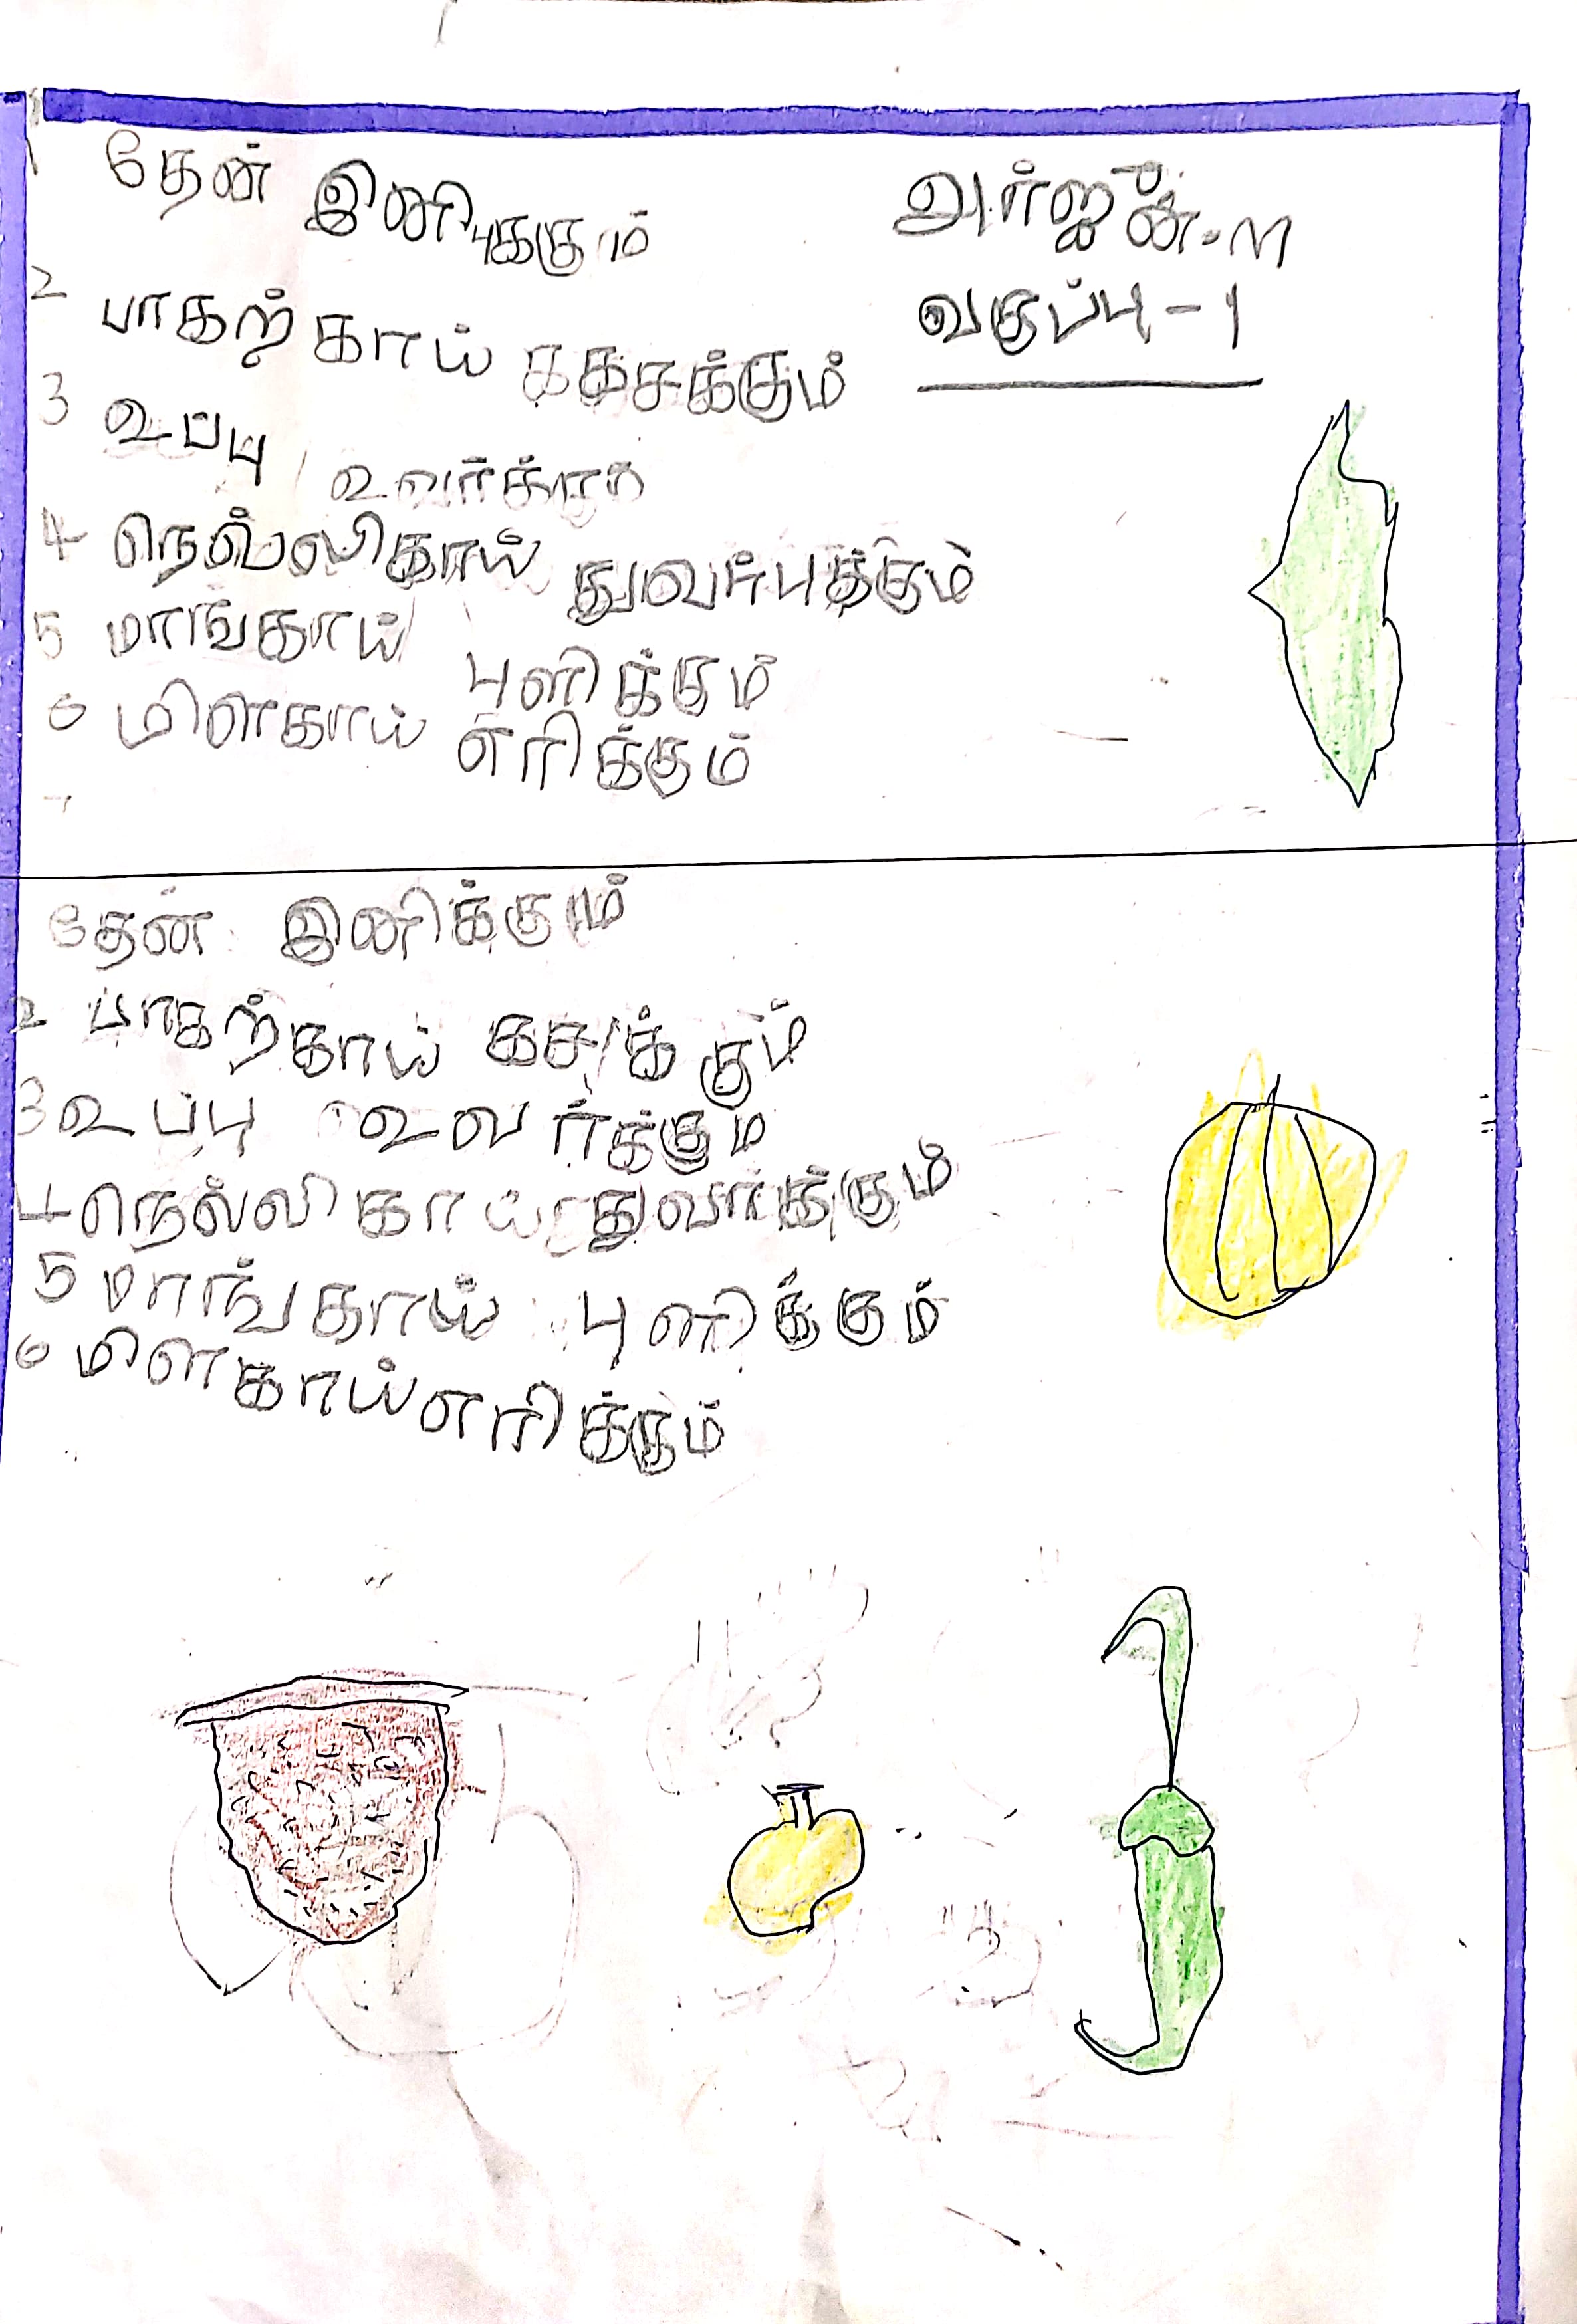 1 தேன் இனிபுக்கும்
அர்ஜீன்.m
வகுப்பு - 1
2 பாகற்காய் ககசக்கும்
3 உப்பு உவர்க்கும்
4 நெல்லிகாய் துவர்புக்கும்
5 மாங்காய் புளிக்கும்
6 மிளகாய் எரிக்கும்
தேன் இனிக்கும்
2 பாகற்காய் கசக்கும்
3 உப்பு உவர்க்கும்
4 நெல்லி காய் துவர்க்கும்
5 மாங்காய் புளிக்கும்
6 மிளகாய் எரிக்கும்